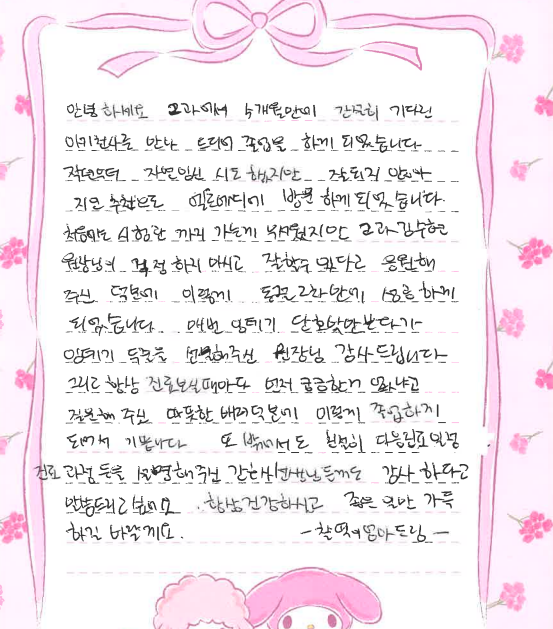 안녕하세요 2과에서 4개월만에 간절히 기다린
아기천사를 만나 드디어 졸업을 하게 되었습니다
작년부터 자연임신 시도 했지만 잘되지 않아
지인 추천으로 엘르메디에 방문하게 되었습니다.
처음에는 시험관 까지 가는게 무서웠지만 2과 김수현
원장님의 걱정하지 마시고 잘할수 있다고 응원해
주신 덕분에 이렇게 동결 2차만에 성공하게
되었습니다 매번 임테기 단호박만 보다가
임테기 두줄을 선물해주신 원장님 감사드립니다
그리고 항상 진료보실때마다 먼저 궁금한거 있냐고
질문해 주신 따뜻한 배려덕분에 이렇게 졸업하게
되어서 기쁩니다 또 밖에서도 친절히 다음진료일정
진료 과정 등을 설명해주신 간호사선생님들께도 감사하다고
말씀드리고 싶어요. 항상 건강하시고 좋은 일만 가득
하길 바랄게요. - 찰떡이엄마드림 -